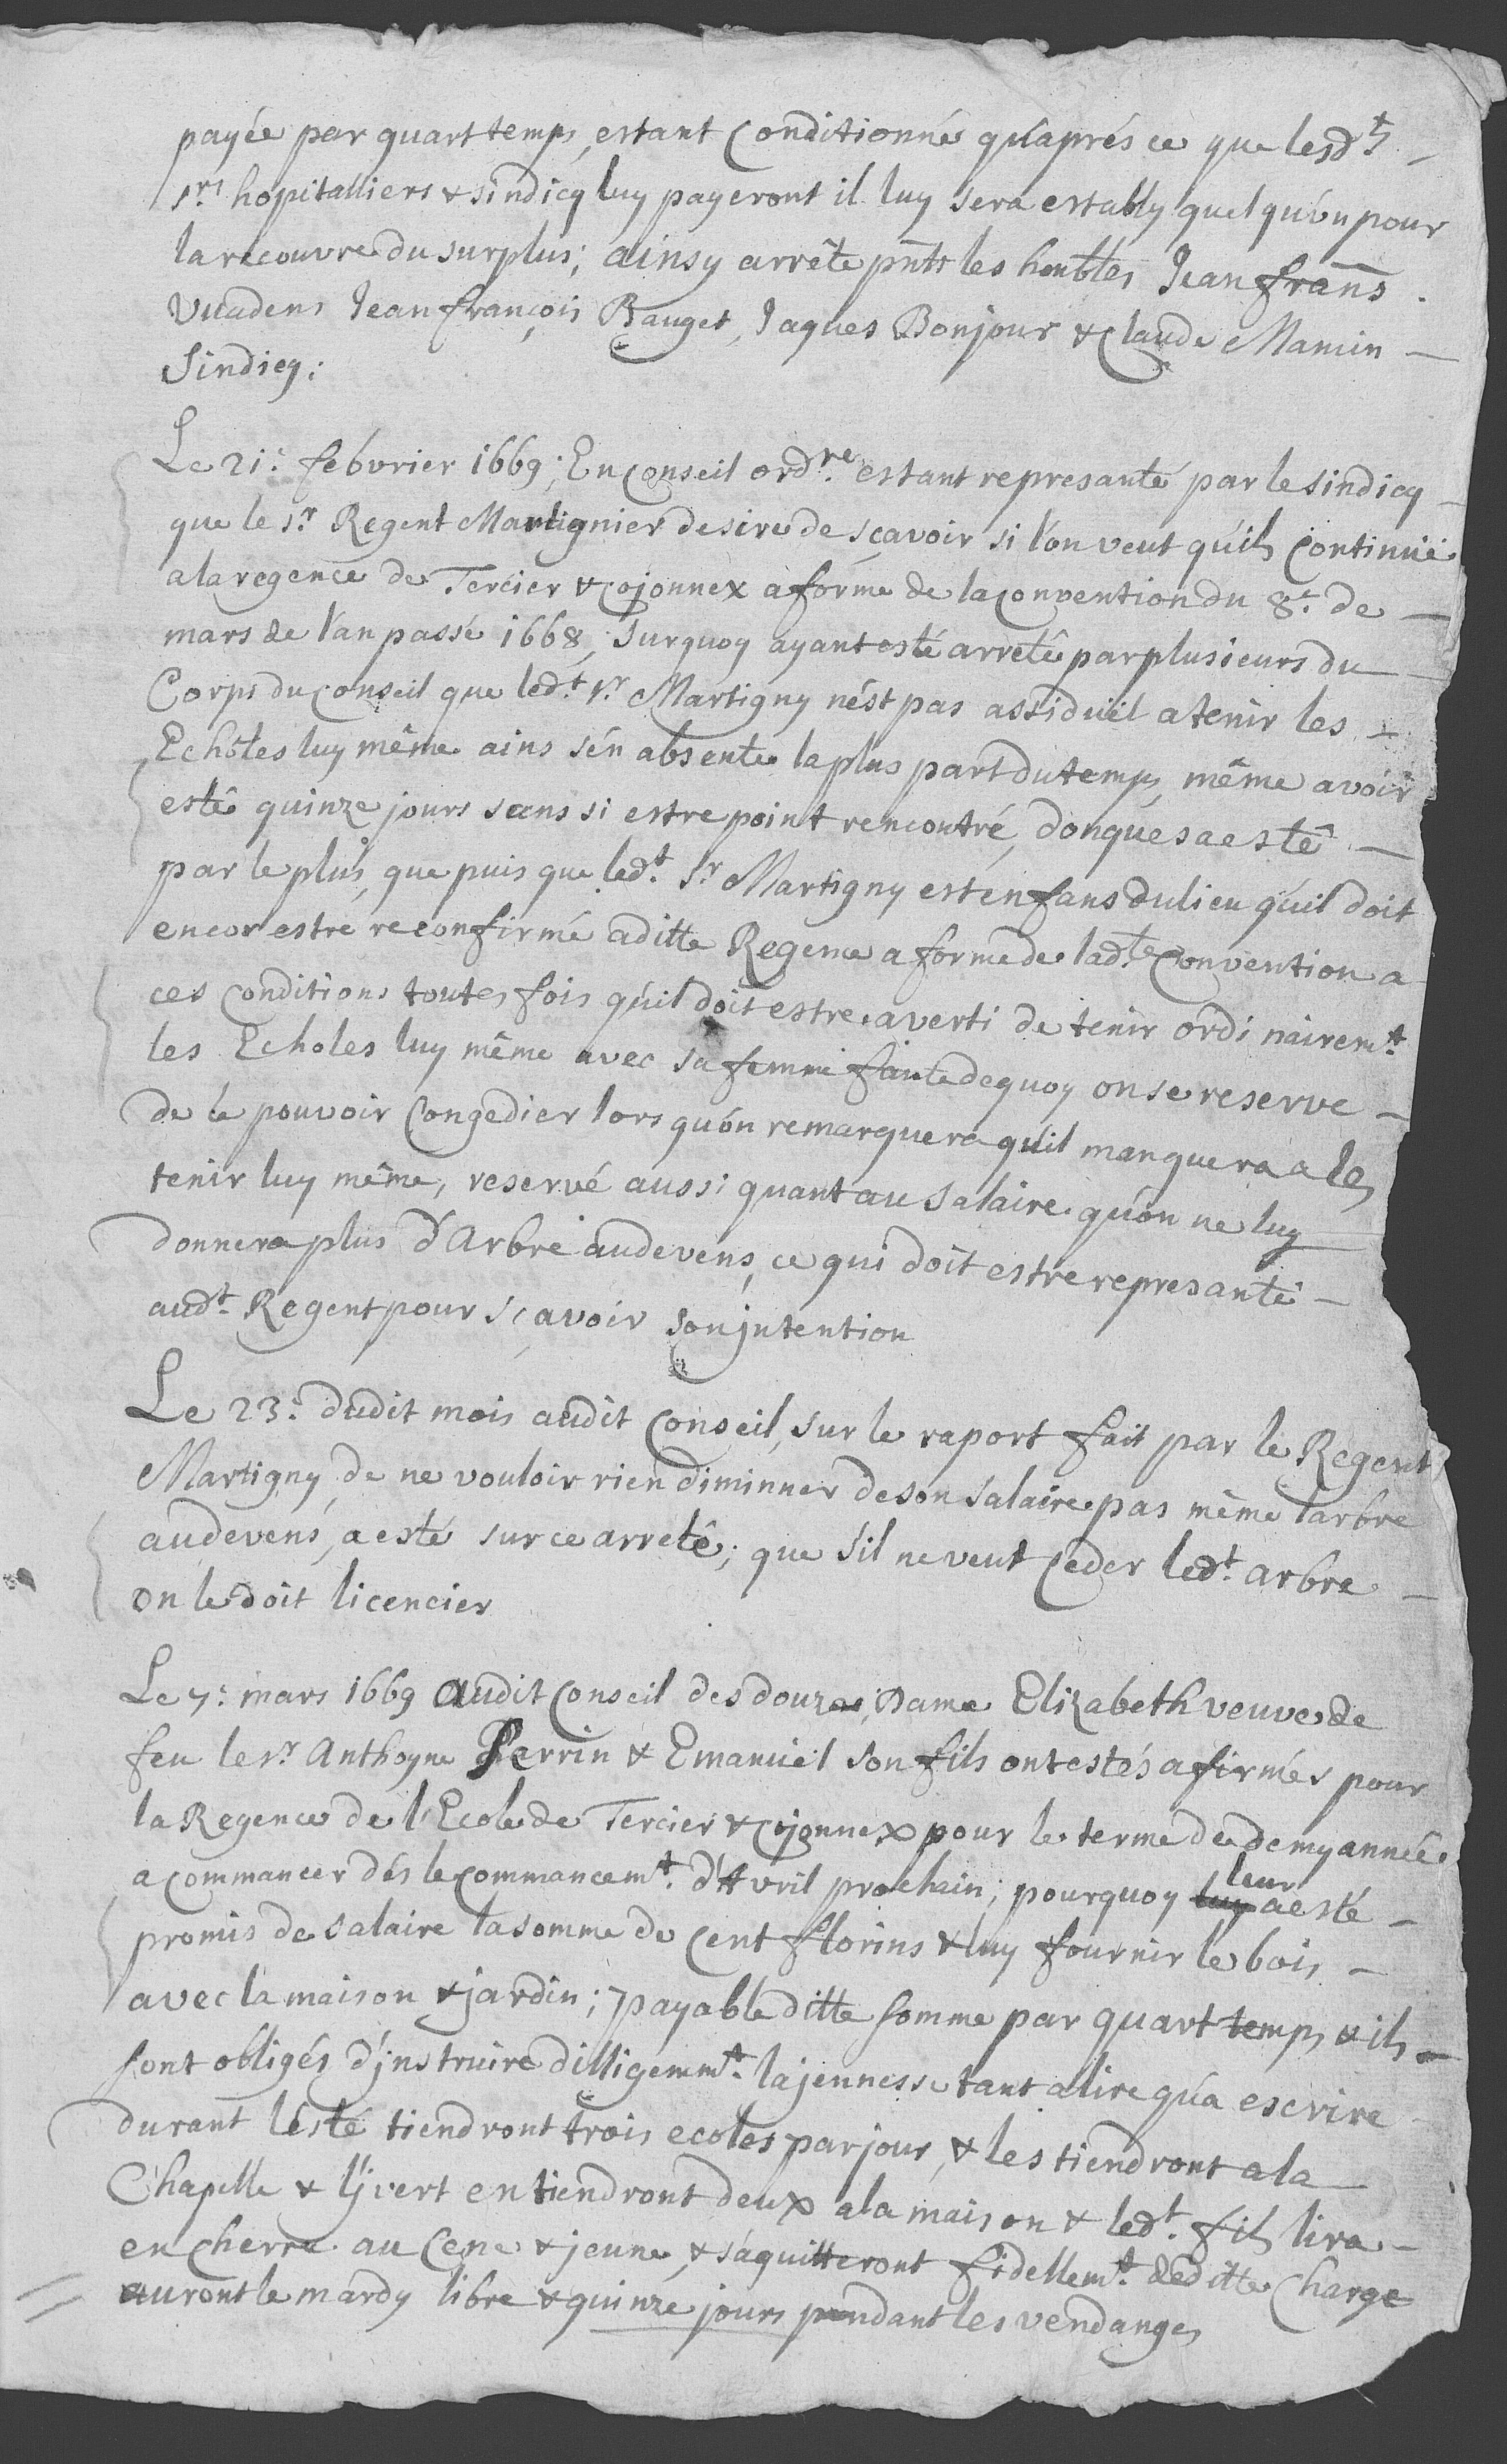 payée par quart temps, estant Conditionné qu'aprés ce que lesd.ts
s.rs hopitalliers & sindicq luy payeront il luy sera establÿ quelqu'vn pour
la recouvre du surplus; ainsy arrête pnts les honbles Jean frans.
Vuadens Jean françois Bauget, Jaques Bonjour & Claude Mamin
Sindicq:
Le 21.e febvrier 1669; En Conseil ord.re estant represanté par le sindicq
que le s.r Regent Martignier desire de sçavoir si l'on veut qu'ils Continuë
a la regence de Tercier & Cojonnex a forme de la Convention du 8.e de
mars de l'an passé 1668, surquoy ayant esté arretê par plusieurs du
Corps du Conseil que led.t s.r Martigny n'est pas assiduël a tenir les
Echôles luy même ains s'en absente la plus part du temps, même avoir
estê quinze jours sans si estre point rencontré, donques a estê
par le plus, que puis que led.t s.r Martigny est enfans du lieu qu'il doit
encor estre reconfirmé a ditte Regence a forme de lad.te Convention a
ces Conditions toutes fois qu'il doit estre averti de tenir ordinairem.t
les Echoles luy même avec sa femme faute dequoy on se reserve
de le pouvoir Congedier lors qu'on remarquera qu'il manquera a les
tenir luy même, reservé aussi quant au salaire qu'on ne luy
donnera plus d'Arbre audevens, ce qui doit estre represantê
aud.t Regent pour sçavoir son jntention
Le 23.e dudit mois audit Conseil, sur le raport fait par le Regent
Martigny de ne vouloir rien diminuer de son salaire pas même l'arbre
audevens, a esté sur ce arretê; que s'il ne veut Ceder led.t arbre
on le doit licencier
Le 7.e mars 1669 audit Conseil des douze, Dame Elizabeth veuve de
feu le s.r Anthoyne Perrin & Emanuël son fils ont estés afirmés pour
la Regence de l'Ecole de Tercier & Cojonnex pour le terme de demy année
a commancer dés le Commancem.t d'Avril prochain; pourquoy luy leur a esté
promis de salaire la somme de Cent florins & luy fournir le bois
avec la maison & jardin; payable ditte somme par quart temps, & ils
sont obligés d'jnstruire dilligemm.t la jennesse tant a lire qu'a escrire
durant l'esté tiendront trois ecoles par jour, & les tiendront a la
Chapelle & l'jvert en tiendront deux a la maison & led.t fils lira
en Cherre au Cene & jeune, & s'aquitteront fidellem.t de ditte Charge
auront le mardy libre & quinze jours pendant les vendanges